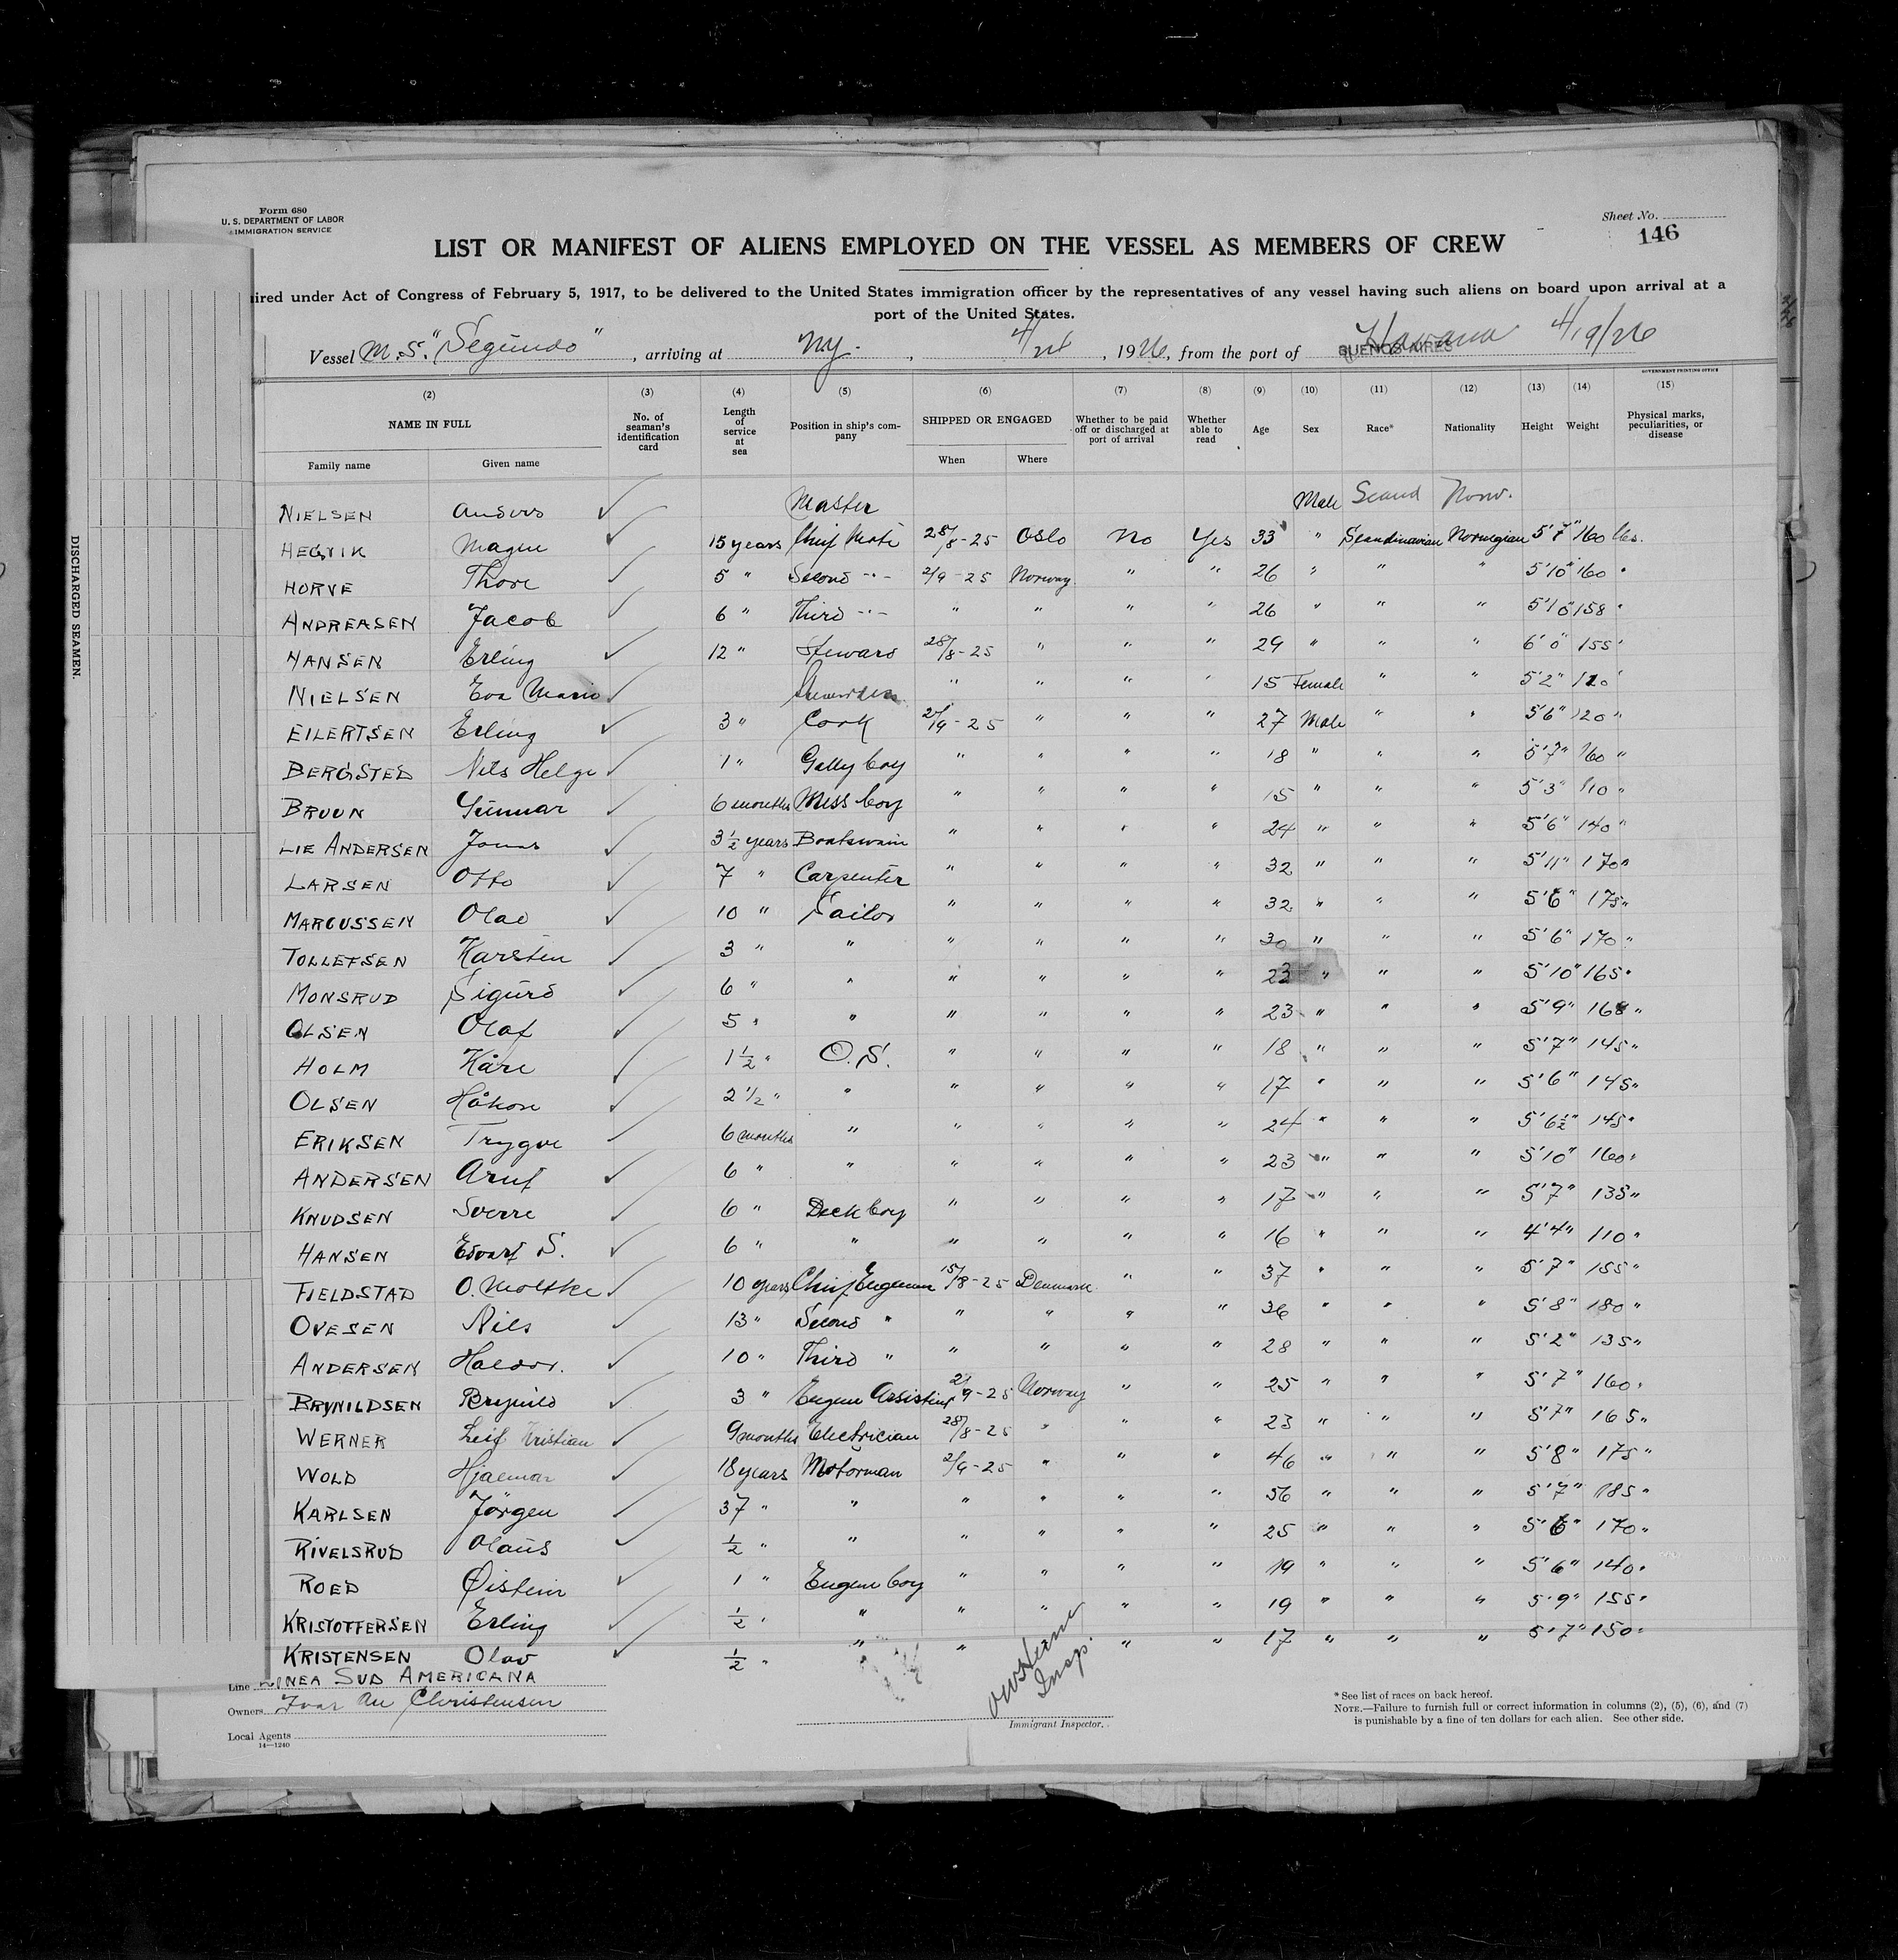 Form 680
U. S. DEPARTMENT OF LABOR
IMMIGRATION SERVICE
Sheet No.
146
LIST OR MANIFEST OF ALIENS EMPLOYED ON THE VESSEL AS MEMBERS OF CREW
ired under Act of Congress of February 5, 1917, to be delivered to the United States immigration officer by the representatives of any vessel having such aliens on board upon arrival at a
port of the United States.
Vessel M.S. "Segundo", arriving at N.Y., 1926, from the port of BUENOS AIRES Havana 4/19/26
GOVERNMENT PRINTING OFFICE
(2) (3) (4) (5) (6) (7) (8) (9) (10) (11) (12) (13) (14) (15)
NAME IN FULL No. of seaman's identification card Length of service at sea Position in ship's company SHIPPED OR ENGAGED Whether to be paid off or discharged at port of arrival Whether able to read Age Sex Race* Nationality Height Weight Physical marks, peculiarities, or disease
Family name Given name When Where
NIELSEN Anders ✓ Master Male Scand Norw.
HEGVIK Magne ✓ 15 years Chief Mate 28/8-25 Oslo No Yes 33 " Scandinavian Norwegian 5'7" 160 lbs.
HORVE Thore ✓ 5 " Second -"- 2/9-25 Norway " " 26 " " " 5'10" 160 "
ANDREASEN Jacob ✓ 6 " Third -"- " " " " 26 " " " 5'10 158 "
HANSEN Erling ✓ 12 " Steward 28/8-25 " " " 29 " " " 6'0" 155 "
NIELSEN Eva Marie ✓ " " " " 15 Female " " 5'2" 120 "
EILERTSEN Erling ✓ 3 " Cook 2/9-25 " " " 27 Male " " 5'6" 120 "
BERGSTED Nils Helge ✓ 1 " Gally boy " " " " 18 " " " 5'7" 160 "
BRUUN Gunnar ✓ 6 months Mess boy " " " " 15 " " " 5'3" 110 "
LIE ANDERSEN Jonas ✓ 3 1/2 years Boatswain " " " " 24 " " " 5'6" 140 "
LARSEN Otto ✓ 7 " Carpenter " " " " 32 " " " 5'11" 170 "
MARCUSSEN Olav ✓ 10 " Sailor " " " " 32 " " " 5'6" 175 "
TOLLEFSEN Karsten ✓ 3 " " " " " " 30 " " " 5'6" 170 "
MONSRUD Sigurd ✓ 6 " " " " " " 23 " " " 5'10" 165 "
OLSEN Olaf ✓ 5 " " " " " " 23 " " " 5'9" 168 "
HOLM Kåre ✓ 1 1/2 " O.S. " " " " 18 " " " 5'7" 145 "
OLSEN Håkon ✓ 2 1/2 " " " " " " 17 " " " 5'6" 145 "
ERIKSEN Trygve ✓ 6 months " " " " " 24 " " " 5'6½" 145 "
ANDERSEN Arnt ✓ 6 " " " " " " 23 " " " 5'10" 160 "
KNUDSEN Sverre ✓ 6 " Deck boy " " " " 17 " " " 5'7" 135 "
HANSEN Edvart S. ✓ 6 " " " " " " 16 " " " 4'4" 110 "
FJELDSTAD O. Moltke ✓ 10 years Chief Engineer 15/8-25 Denmark " " 37 " " " 5'7" 155 "
OVESEN Nils ✓ 13 " Second " " " " " 36 " " " 5'8" 180 "
ANDERSEN Haldor. ✓ 10 " Third " " " " " 28 " " " 5'2" 135 "
BRYNILDSEN Brynild ✓ 3 " Engine Assistent 2/9-25 Norway " " 25 " " " 5'7" 160 "
WERNER Leif Kristian ✓ 9 months Electrician 28/8-25 " " " 23 " " " 5'7" 165 "
WOLD Hjalmar ✓ 18 years Motorman 2/9-25 " " " 46 " " " 5'8" 175 "
KARLSEN Jörgen ✓ 37 " " " " " " 56 " " " 5'7" 185 "
RIVELSRUD Olaus ✓ 1/2 " " " " " " 25 " " " 5'6" 170 "
ROED Øistein ✓ 1 " Engine boy " " " " 19 " " " 5'6" 140 "
KRISTOFFERSEN Erling ✓ 1/2 " " " " " " 19 " " " 5'9" 155 "
KRISTENSEN Olav ✓ 1/2 " " " " " 17 " " " 5'7" 150 "
Line LINEA SUD AMERICANA
Owners Ivar An Christensen
Local Agents
14—1240
Insp.
Immigrant Inspector.
* See list of races on back hereof.
NOTE.—Failure to furnish full or correct information in columns (2), (5), (6), and (7)
is punishable by a fine of ten dollars for each alien. See other side.
DISCHARGED SEAMEN.